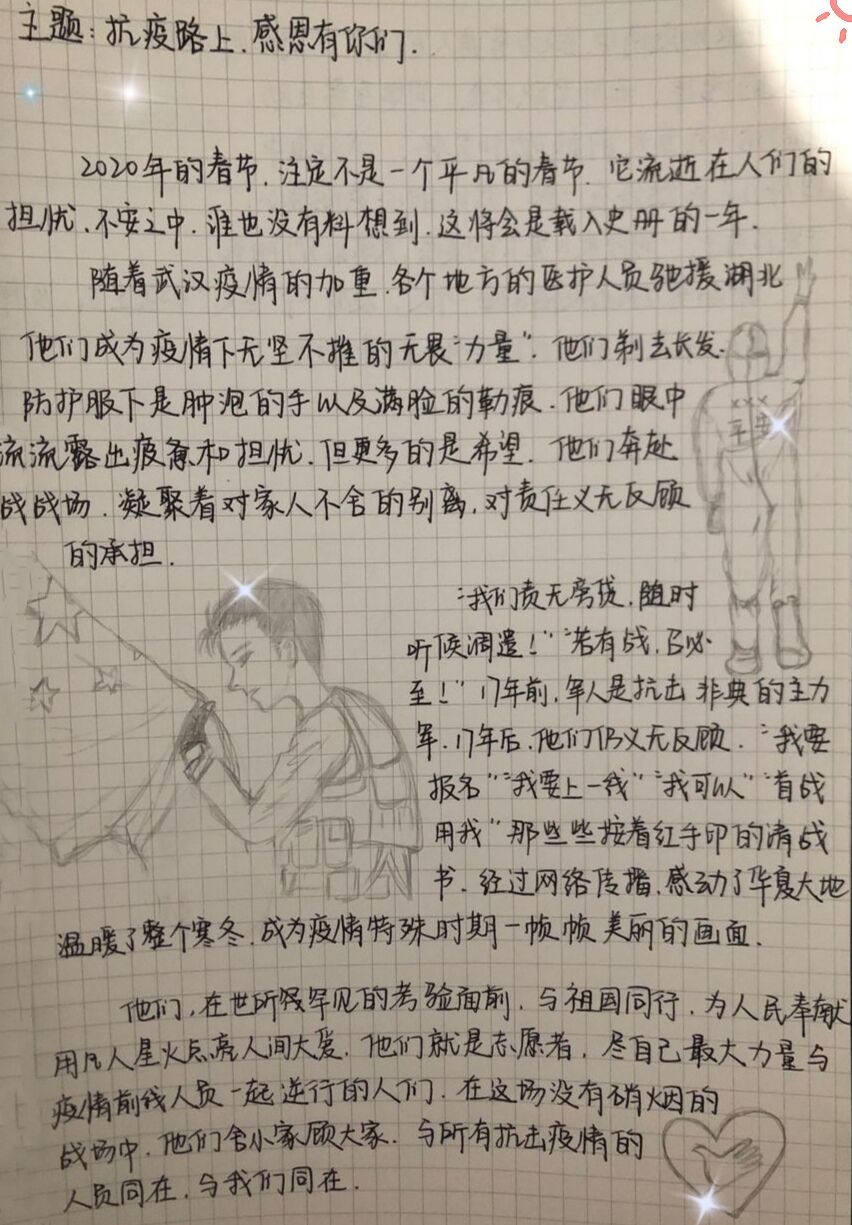 主题:抗疫路上,感恩有你们.
2020年的春节,注定不是一个平凡的春节.它流逝在人们的
担忧、不安之中.谁也没有料想到,这将会是载入史册的一年.
随着武汉疫情的加重,各个地方的医护人员驰援湖北
他们成为疫情下无坚不摧的无畏“力量”.他们剃去长发.
防护服下是肿泡的手以及满脸的勒痕.他们眼中
流流露出疲惫和担忧,但更多的是希望.他们奔赴
战战场.凝聚着对家人不舍的别离,对责任义无反顾
的承担.
“我们责无旁贷,随时
听候调遣!”“若有战,召必
至!”17年前,军人是抗击非典的主力
军.17年后,他们仍义无反顾.“我要
报名”“我要上一线”“我可以”“首战
用我”那些些按着红手印的请战
书.经过网络传播,感动了华夏大地
温暖了整个寒冬.成为疫情特殊时期一帧帧美丽的画面.
他们,在世所罕见的考验面前.与祖国同行,为人民奉献
用凡人星火点亮人间大爱.他们就是志愿者.尽自己最大力量与
疫情前线人员一起逆行的人们.在这场没有硝烟的
战场中.他们舍小家顾大家.与所有抗击疫情的
人员同在,与我们同在.